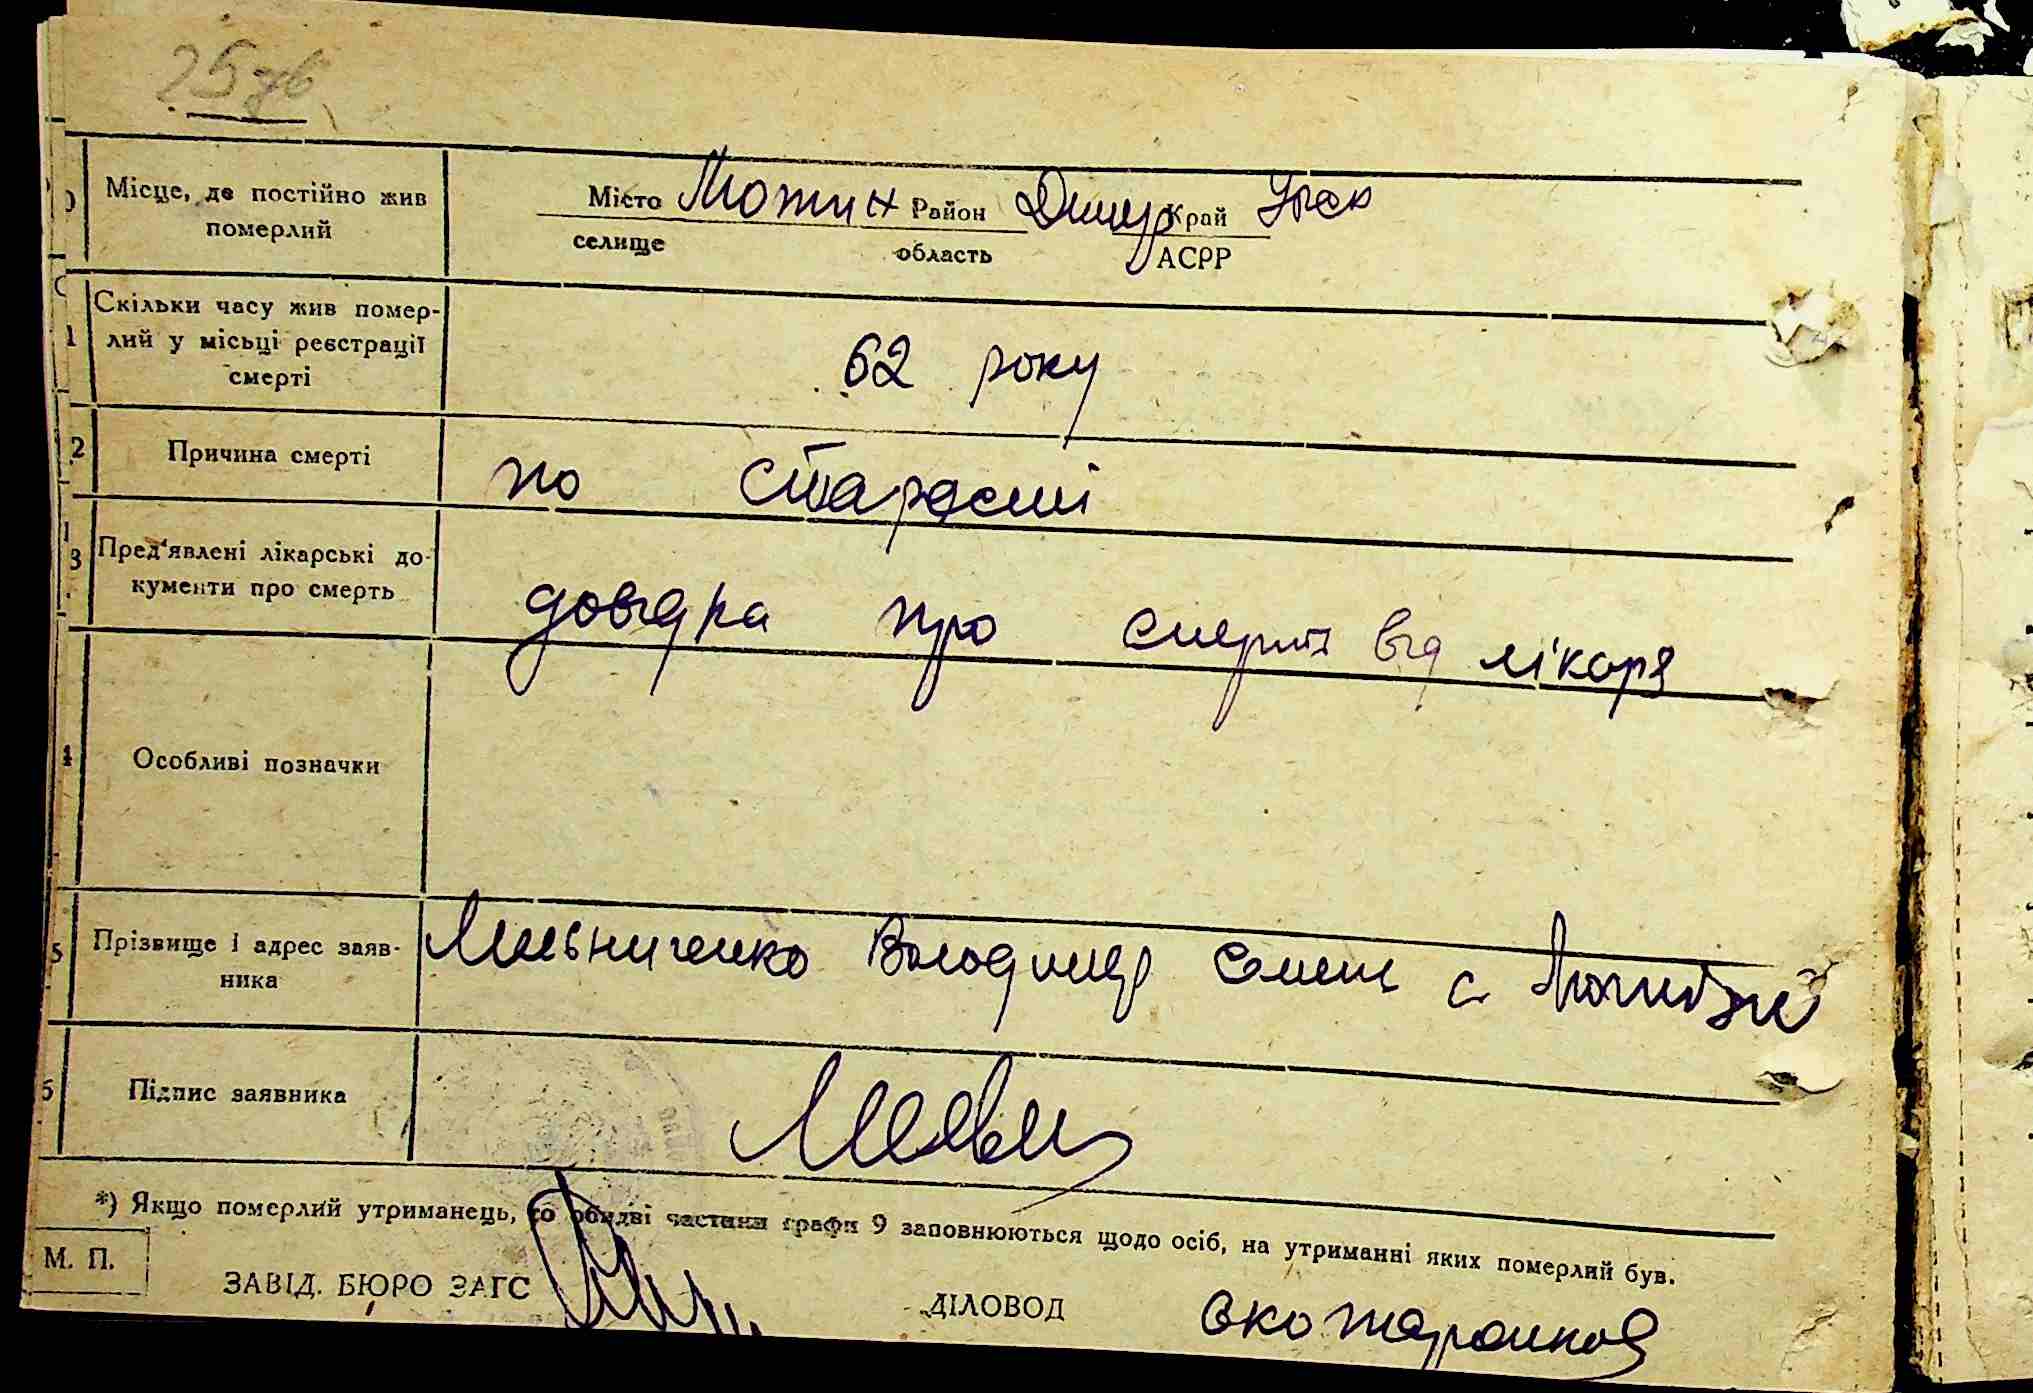 25зв
Місце, де постійно жив
померлий
Місто Мотижин Район Димер Край Укр
селище область АСРР
Скільки часу жив помер-
лий у місьці реєстрації
смерті
62 року
2 Причина смерті
по старості
3 Пред'явлені лікарські до-
кументи про смерть
довідка про смерть від лікаря
4 Особливі позначки
5 Прізвище і адрес заяв-
ника
Мельниченко Володимер Семен с
6 Підпис заявника
*) Якщо померлий утриманець, то обидві частини графи 9 заповнюються щодо осіб, на утриманні яких померлий був.
М. П.
ЗАВІД. БЮРО ЗАГС ДІЛОВОД